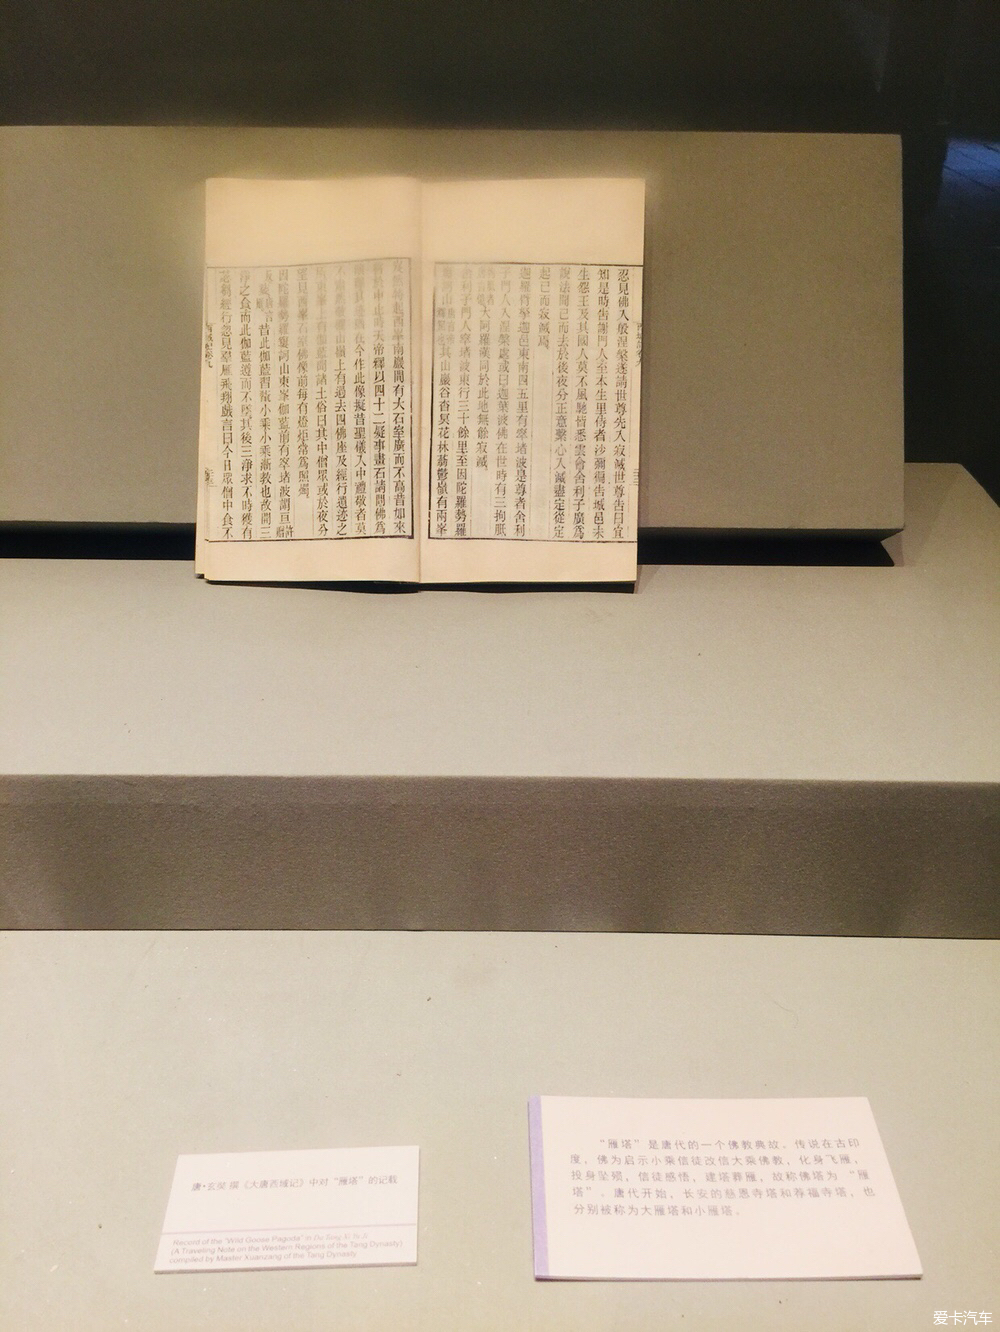 忍見佛入般涅槃遂請世尊先入寂滅世尊告曰宜
知是時告謝門人至本生里侍者沙彌徧告城邑未
生怨王及其國人莫不風馳皆悉雲會舍利子廣為
說法聞已而去於後夜分正意繫心入滅盡定從定
起已而寂滅焉
迦羅臂拏迦邑東南四五里有窣堵波是尊者舍利
子門人入涅槃處或曰迦葉波佛在世時有三拘胝
大阿羅漢同於此地無餘寂滅
舍利子門人窣堵波東行三十餘里至因陀羅勢羅
其山巖谷杳冥花林蓊鬱嶺有兩峯
西峯南巖間有大石室廣而不高昔如來
於中止時天帝釋以四十二疑事畫石請問佛為
今作此像擬昔聖儀入中禮敬者莫
山嶺上有過去四佛座及經行遺迹之
東峯上有伽藍聞諸土俗曰其中僧眾或於夜分
望見西峯石室佛像前每有燈炬常為照燭
因陀羅勢羅窶訶山東峯伽藍前有窣堵波謂亘許贈
昔此伽藍習翫小乘小乘漸教也故開三
淨之食而此伽藍遵而不墜其後三淨求不時獲有
苾芻經行忽見羣鴈飛翔戲言曰今日眾僧中食不
唐·玄奘 撰《大唐西域记》中对“雁塔”的记载
Record of the "Wild Goose Pagoda" in Da Tang Xi Yu Ji
(A Traveling Note on the Western Regions of the Tang Dynasty)
compiled by Master Xuanzang of the Tang Dynasty
“雁塔”是唐代的一个佛教典故。传说在古印
度，佛为启示小乘信徒改信大乘佛教，化身飞雁，
投身坠殒，信徒感悟，建塔葬雁，故称佛塔为“雁
塔”。唐代开始，长安的慈恩寺塔和荐福寺塔，也
分别被称为大雁塔和小雁塔。
爱卡汽车